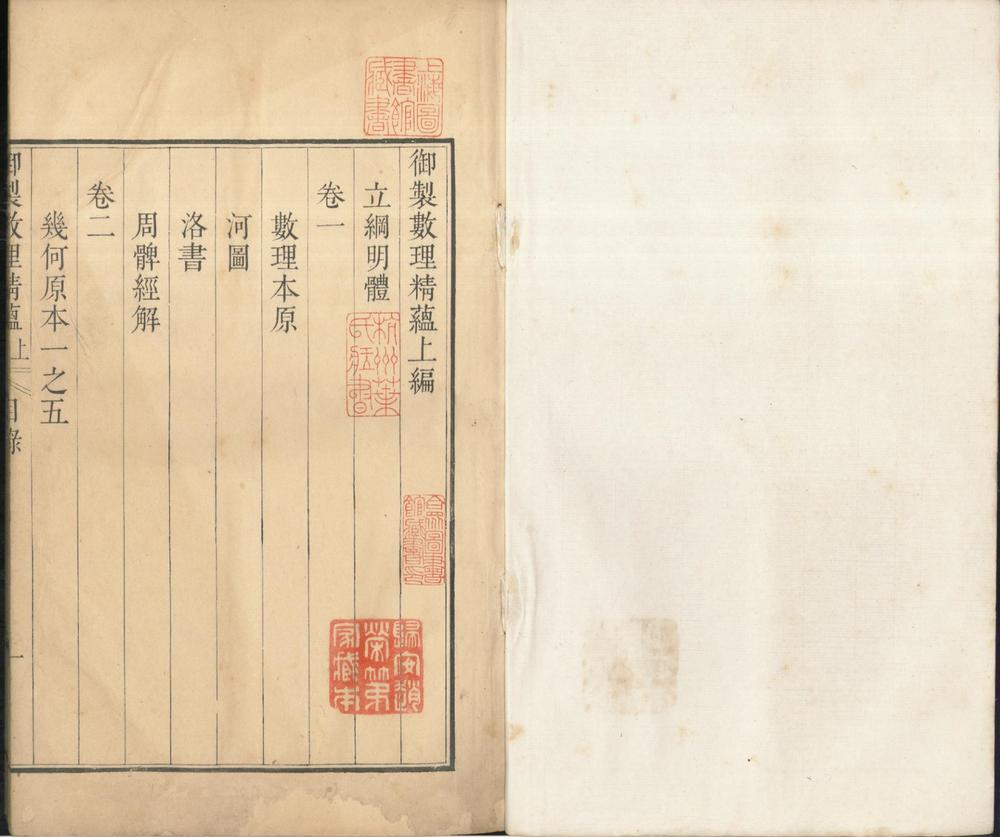 御製數理精蘊上編
立綱明體
卷一
數理本原
河圖
洛書
周髀經解
卷二
幾何原本一之五
御製數理精蘊上
目錄
一
上海圖書館藏書
杭州葉氏藏書
合眾圖書館藏書印
歸安趙榮第家藏本